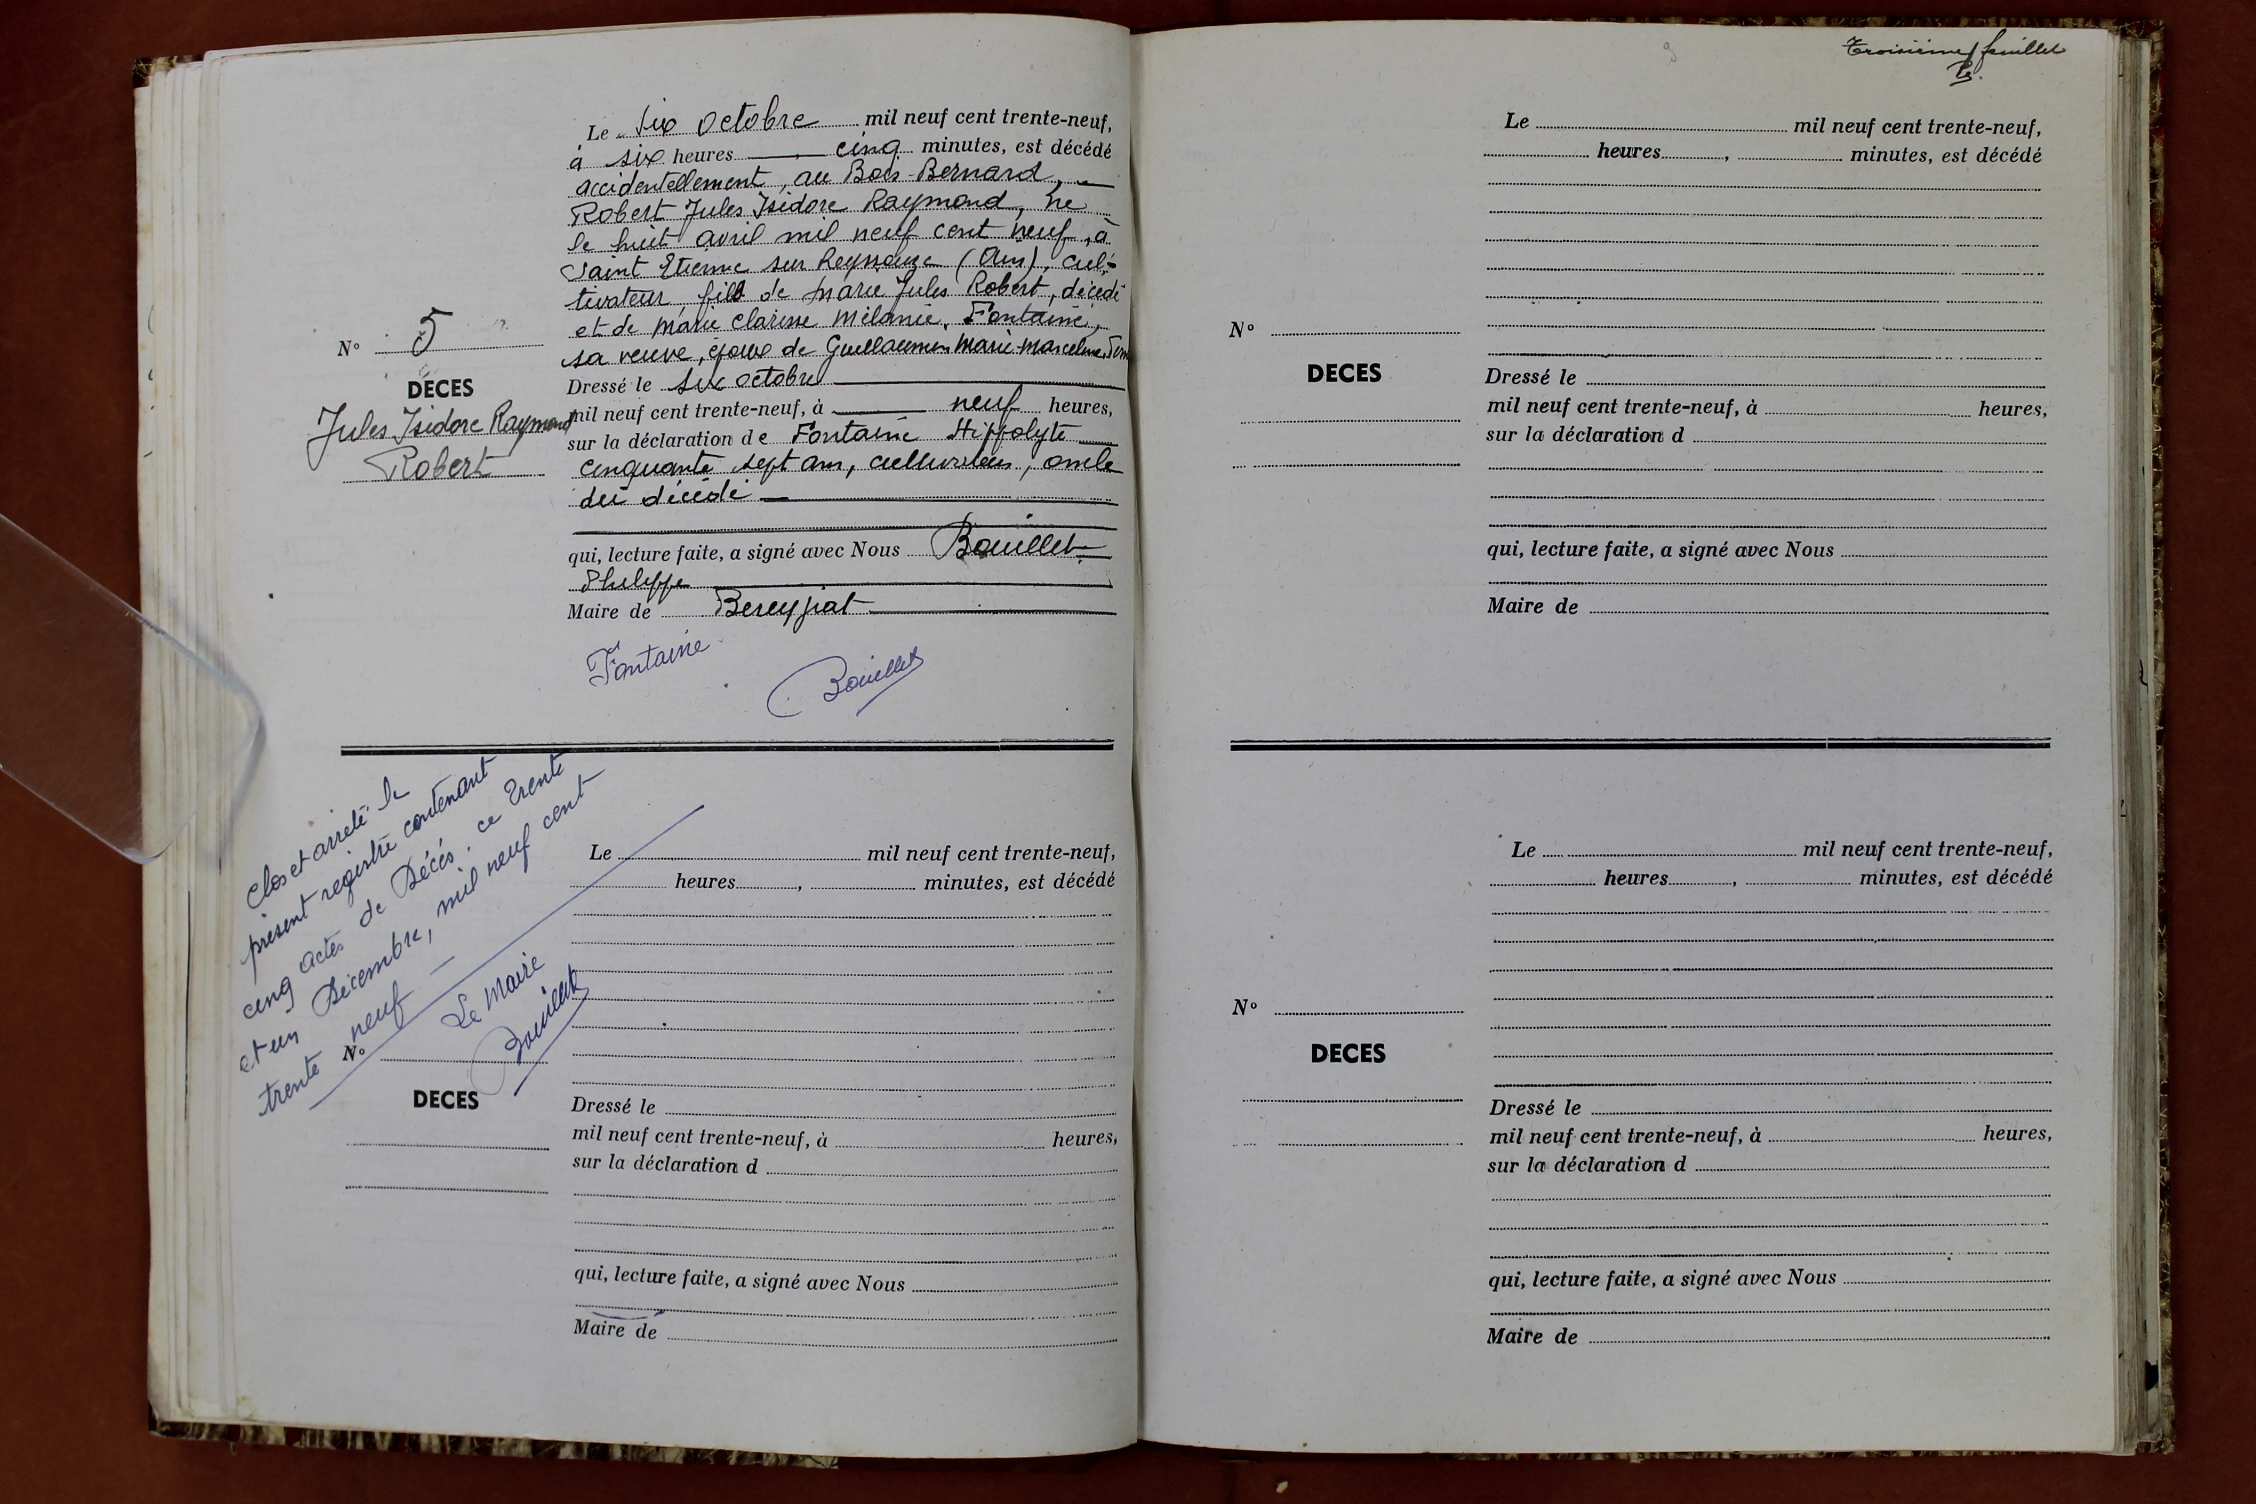 Le six octobre mil neuf cent trente-neuf,
à six heures cinq minutes, est décédé
accidentellement, au Bois-Bernard,
Robert Jules Isidore Raymond, né
le huit avril mil neuf cent neuf, à
Saint Etienne sur Reyssouze (Ain), cul-
tivateur, fils de Marie Jules Robert, décédé
et de Marie Clarisse Mélanie Fontaine,
sa veuve, époux de Guillaumin Marie-Marceline
Nº 5
DÉCÈS
Jules Isidore Raymond
Robert
Dressé le six octobre
mil neuf cent trente-neuf, à neuf heures,
sur la déclaration de Fontaine Hippolyte
cinquante sept ans, cultivateur, oncle
du décédé
qui, lecture faite, a signé avec Nous Bouillet
Philippe
Maire de Bereyziat
Fontaine
Bouillet
Clos et arrêté le
présent registre contenant
cinq actes de Décés. ce trente
et un Décembre, mil neuf cent
trente neuf
Le Maire
Bouillet
Le mil neuf cent trente-neuf,
heures, minutes, est décédé
Nº
DECES
Dressé le
mil neuf cent trente-neuf, à heures,
sur la déclaration d
qui, lecture faite, a signé avec Nous
Maire de
Troisième feuillet
Le mil neuf cent trente-neuf,
heures, minutes, est décédé
Nº
DECES
Dressé le
mil neuf cent trente-neuf, à heures,
sur la déclaration d
qui, lecture faite, a signé avec Nous
Maire de
Le mil neuf cent trente-neuf,
heures, minutes, est décédé
Nº
DECES
Dressé le
mil neuf cent trente-neuf, à heures,
sur la déclaration d
qui, lecture faite, a signé avec Nous
Maire de